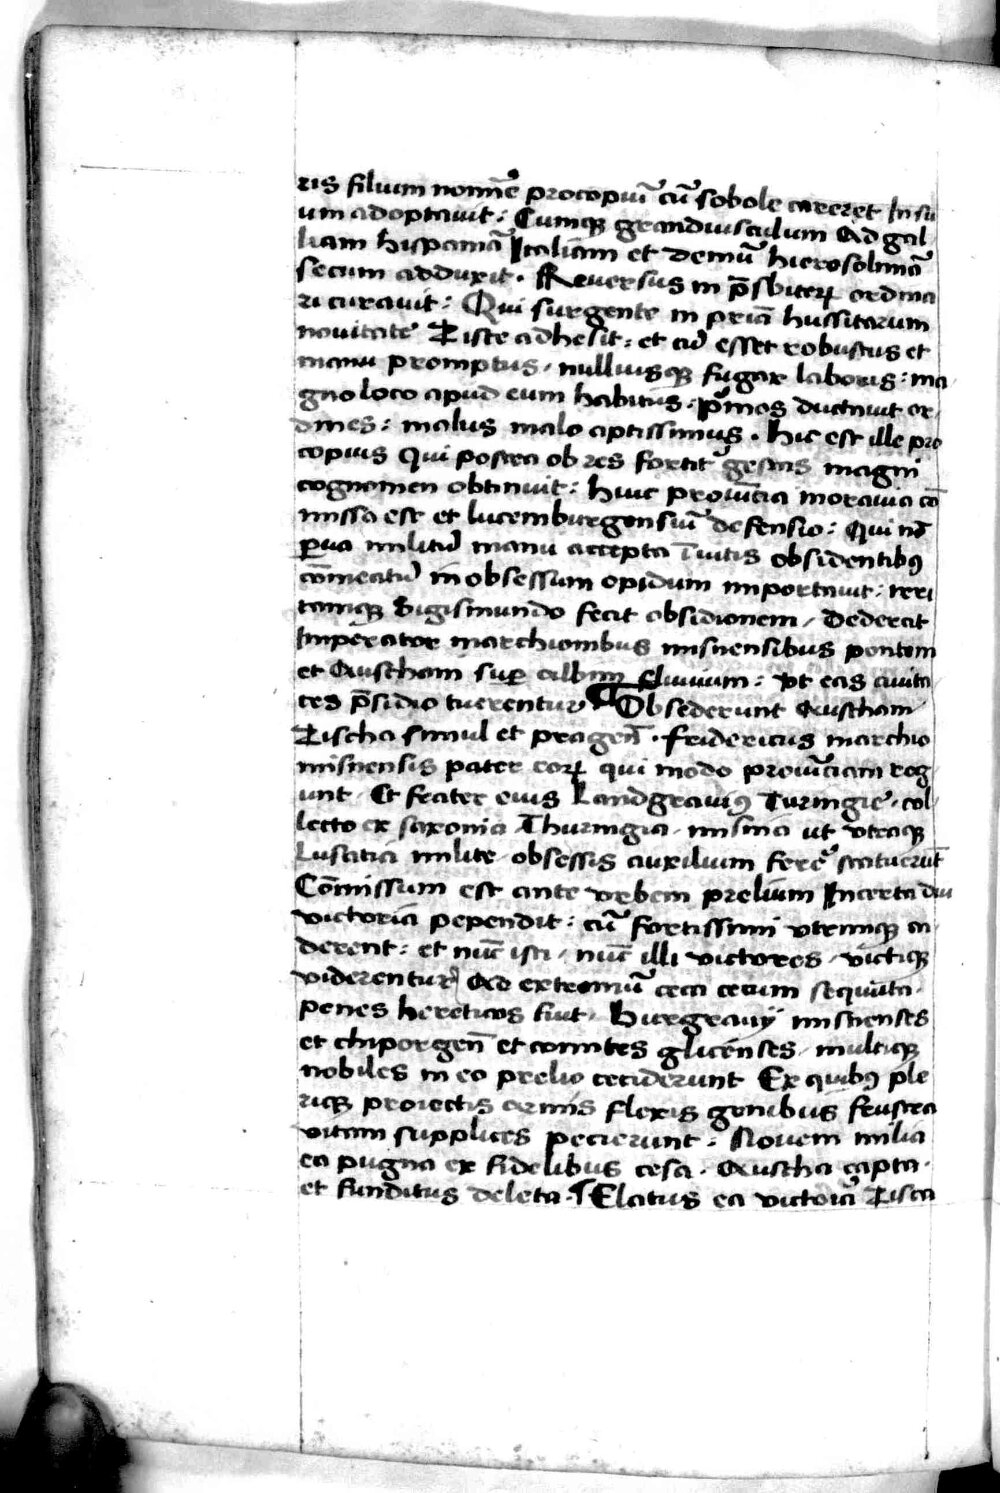 ris filium nomīe procopiū cū sobole careret In su
um adoptauit : Cumqꝫ grandiusculum Ad gal
liam hispaniā Italiam et demū hierosolimā
secum adduxit . Reuersus in p̄sbiterꝫ ordina
ri curauit : Qui surgente in priā hussitarum
nouitate Ziste adhesit : et cū esset robustus et
manu promptus / nulliusqꝫ fugax laboris : ma
gno loco apud eum habitus . pͥmos ductauit or
dines : malus malo aptissimus . hic est ille pro
copius Qui postea ob res fortitͬ gestas magni
cognomen obtinuit : huic prouītia morauia cō
missa est et lucemburgensiū defensio : Qui nō
ꝑua militū manu accepta ītuitis obsidentibꝯ
cōmeatū in obsessum opidum importauit : irri
tamqꝫ Sigismundo fecit obsidionem / Dederat
Imperator marchionibus misnensibus pontem
et Austham suꝑ albim fluuium : vt eas ciuita
tes p̄sidio tuerentur ¶ Obsederunt Austham
Zischa simul et pragen̄ . fridericus marchio
misnensis pater eorꝫ qui modo prouītiam reg
unt . Et frater eius Landgrauiꝯ Turingie . col
lecto ex saxonia Thuringia . misnia ut vtraqꝫ
Lusatia milite obsessis auxilium ferre statuerūt
Cōmissum est ante vrbem prelium Incerta diu
victoria pependit : cū fortissimi vtrimqꝫ ca
derent : et nūc isti / nūc illi victores / victiqꝫ
viderentur / Ad extremū ceca cecum sequuta .
penes hereticos fuit . Burgrauij misnenses
et chiporgen̄ et comites glicenses / multiqꝫ
nobiles in eo prelio ceciderunt Ex quibꝯ ple
riqꝫ proiectis armis flexis genibus frustra
vitam supplices petierunt . Nouem milia
ea pugna ex fidelibus cesa . Austha capta .
et funditus deleta . ¶ Elatus ea victoriā Zisca